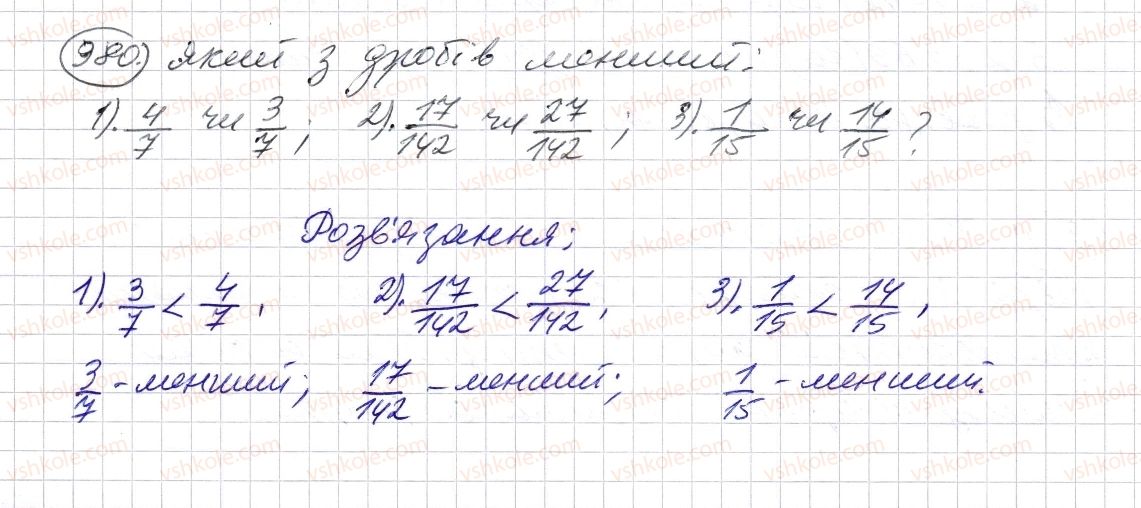 980.) який з дробів менший:
1). 4/7 чи 3/7; 2). 17/142 чи 27/142; 3). 1/15 чи 14/15?
Розв'язання:
1). 3/7 < 4/7, 2). 17/142 < 27/142, 3). 1/15 < 14/15,
3/7 - менший; 17/142 - менший; 1/15 - менший.